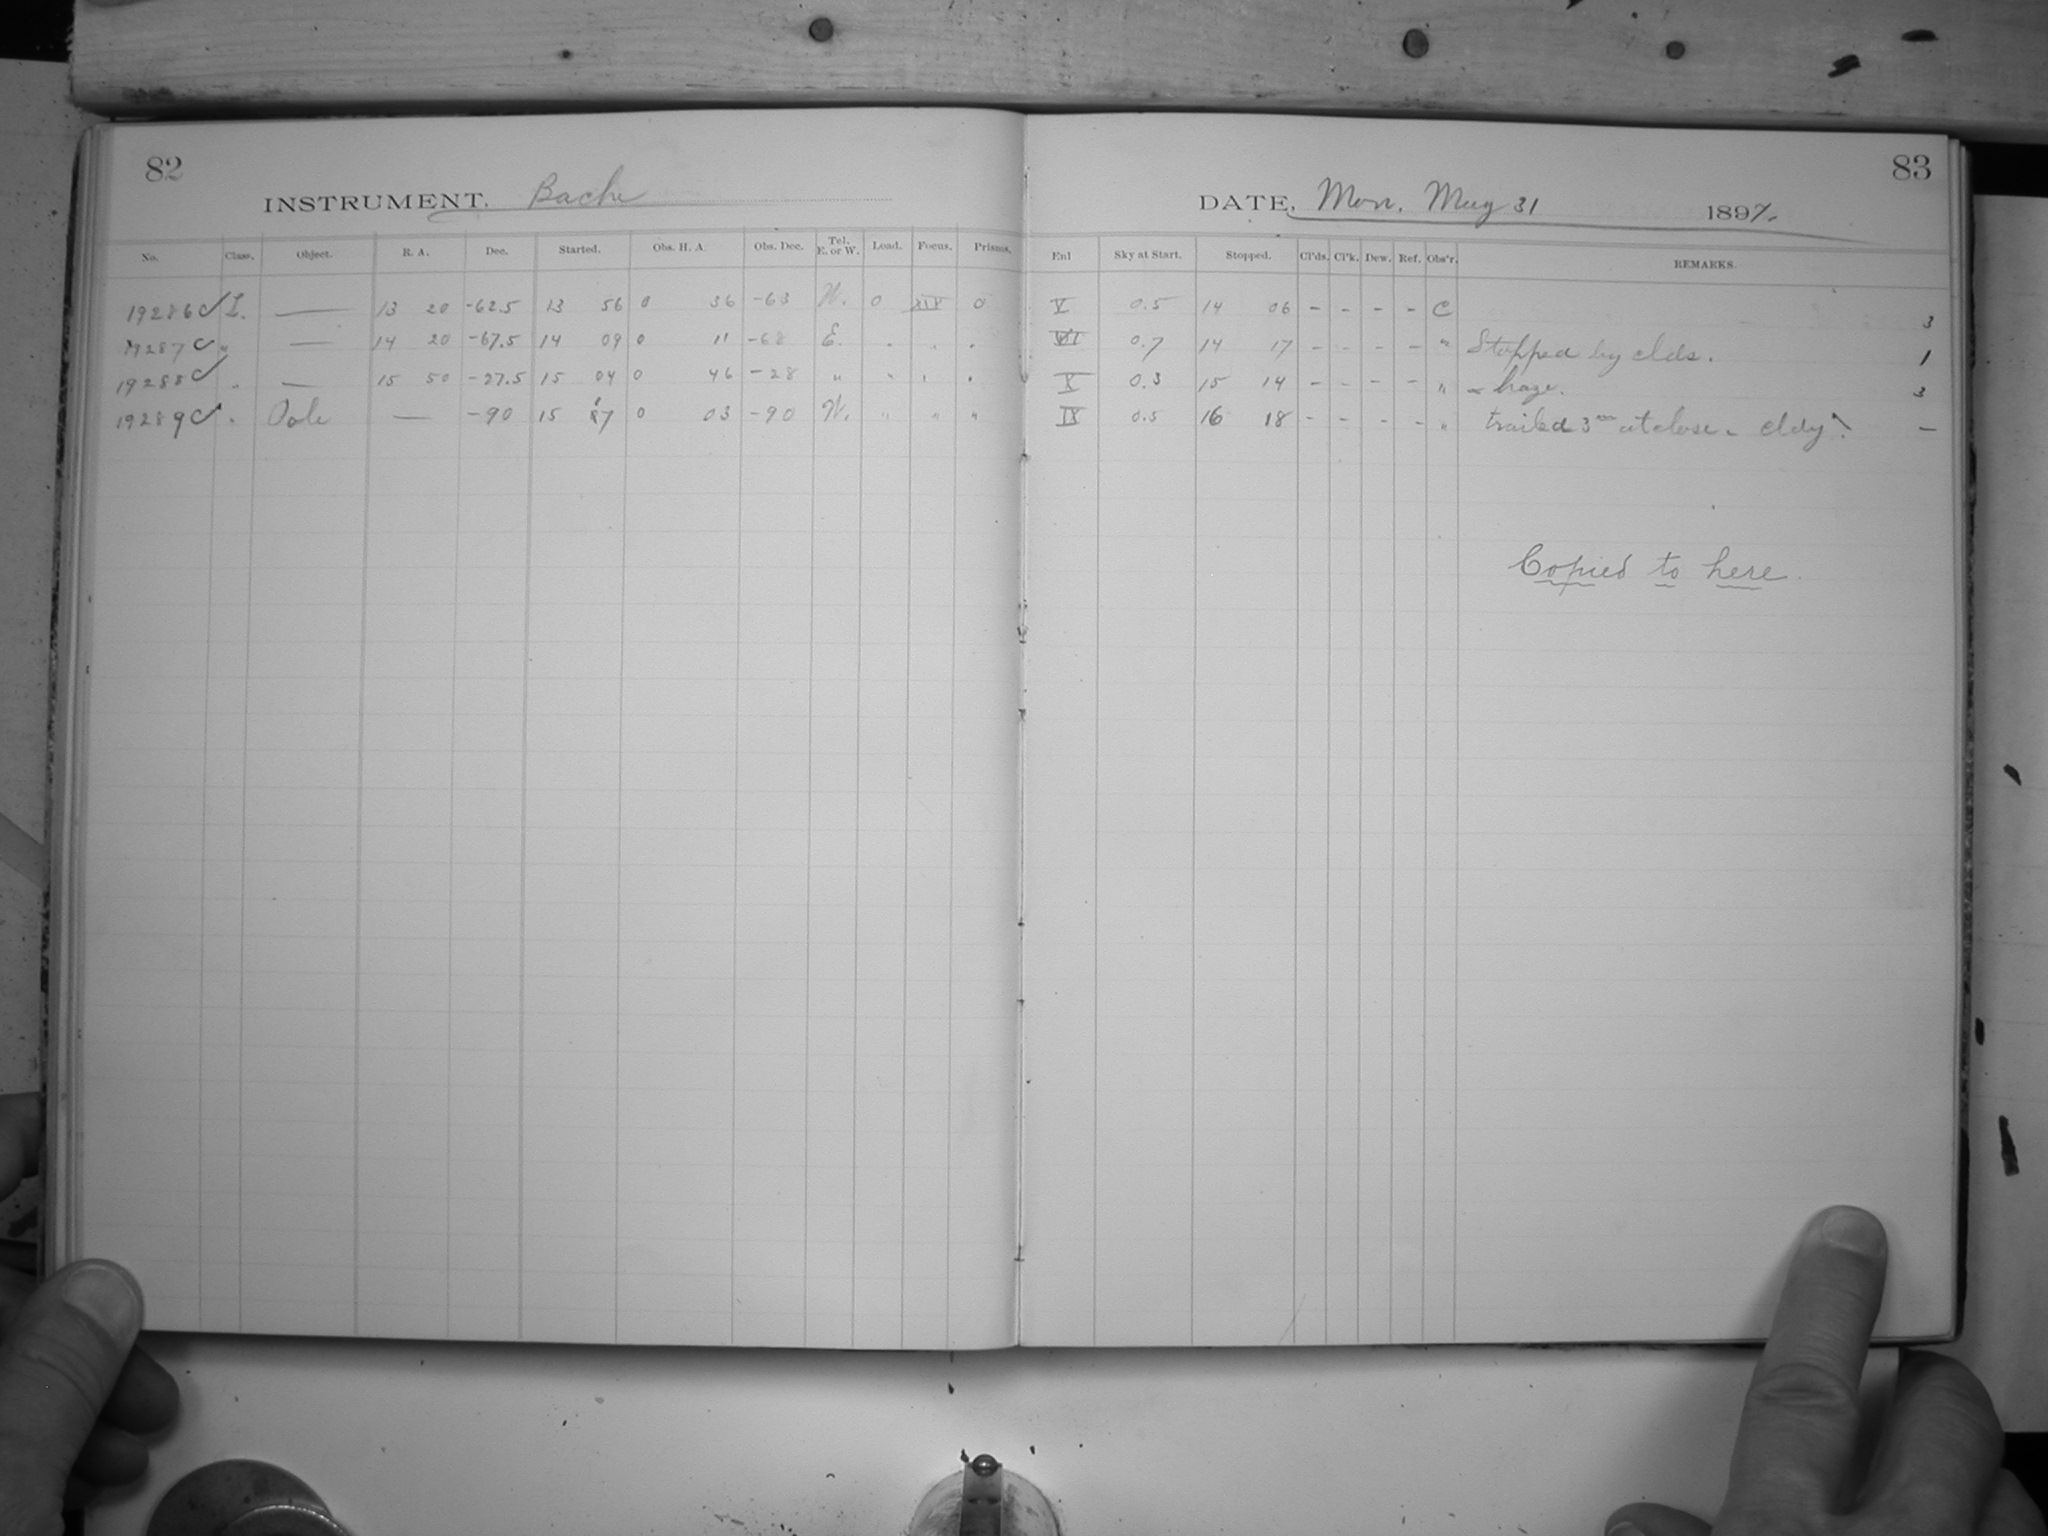 82
INSTRUMENT. Bache
No. Class. Object. R. A. Dec. Started. Obs. H. A. Obs. Dec. Tel. E. or W. Load. Focus. Prisms.
19286 ✓ L. — 13 20 -62.5 13 56 0 36 -63 W. 0 0
19287 ✓ " — 14 20 -67.5 14 09 0 11 -68 E. " " "
19288 ✓ " — 15 50 -27.5 15 04 0 46 -28 " " " "
19289 ✓ " Pole — -90 15 0 03 -90 W. " " "
83
DATE, Mon. May 31 1897.
Enl Sky at Start. Stopped. Cl'ds. Cl'k. Dew. Ref. Obs'r. REMARKS.
V 0.5 14 06 - - - - C 3
0.7 14 17 - - - - " Stopped by clds. 1
X 0.3 15 14 - - - - " haze. 3
IX 0.5 16 18 - - - - " trailed 3m at close - cldy. —
Copied to here.